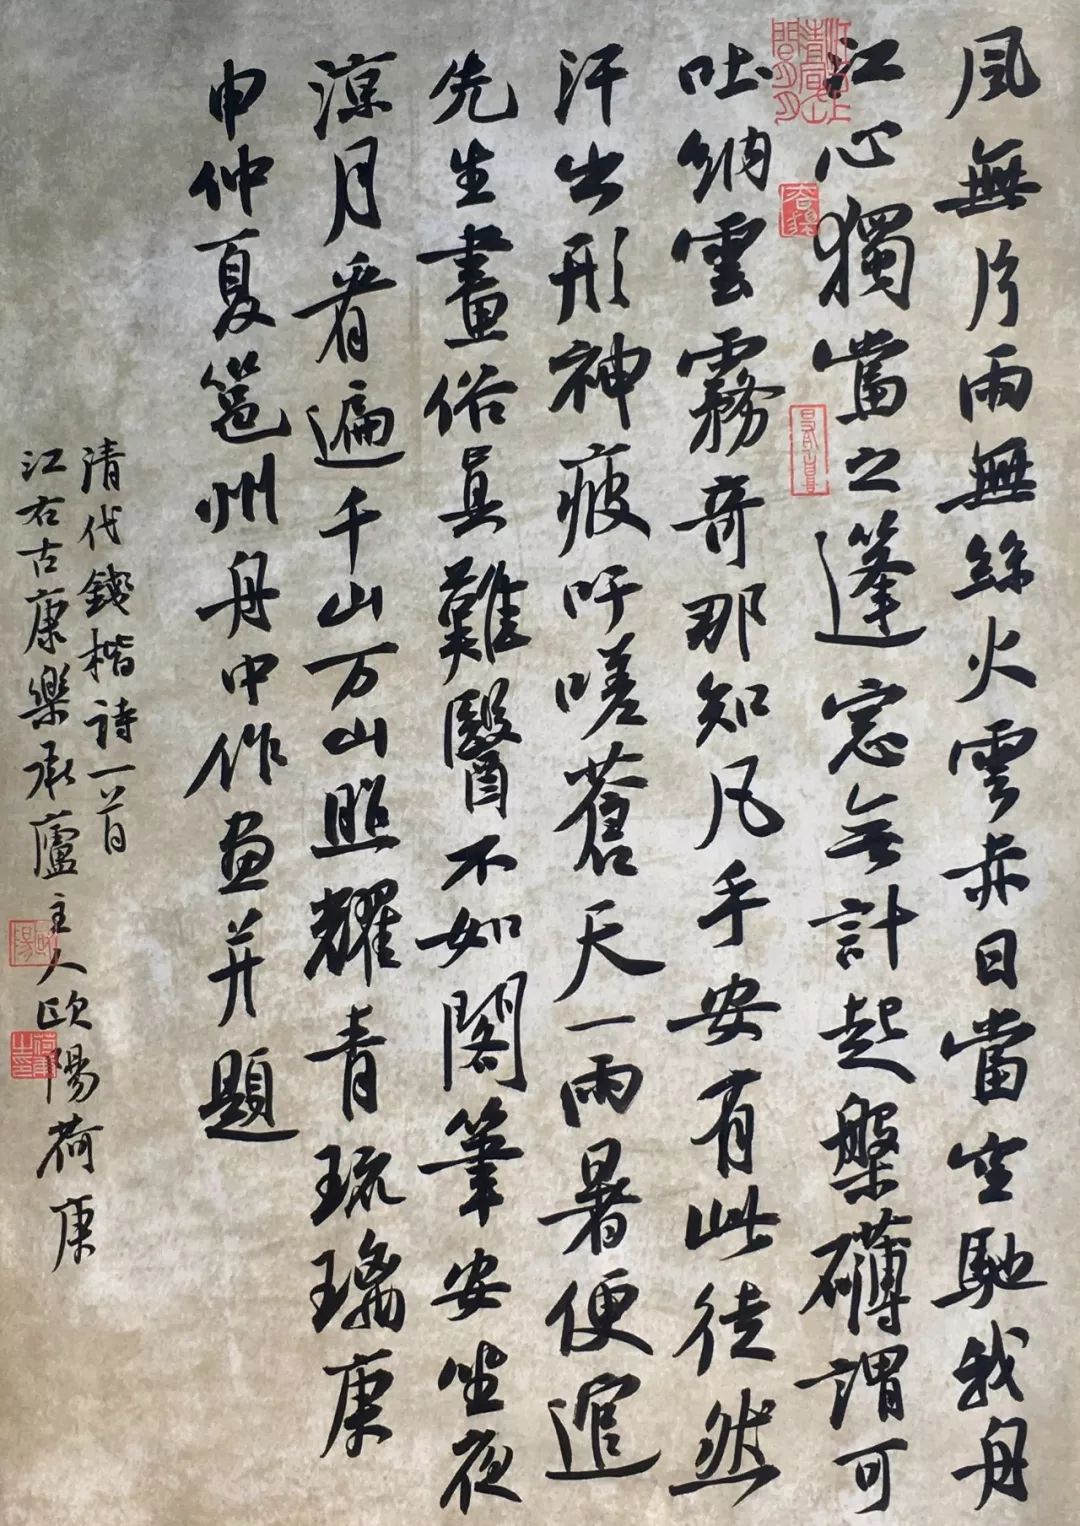 風無片雨無絲火雲赤日當空馳我舟
江心獨當之蓬窓無計起槃礴謂可
吐納雲霧奇那知凡手安有此徒然
汗出形神疲吁嗟蒼天一雨暑便
先生畫俗真難醫不如閣筆安坐夜
涼月看遍千山万山照耀青琉璃庚
申仲夏邕州舟中作畫并題
清代錢楷詩一首
江右古康樂承廬主人歐陽荷庚